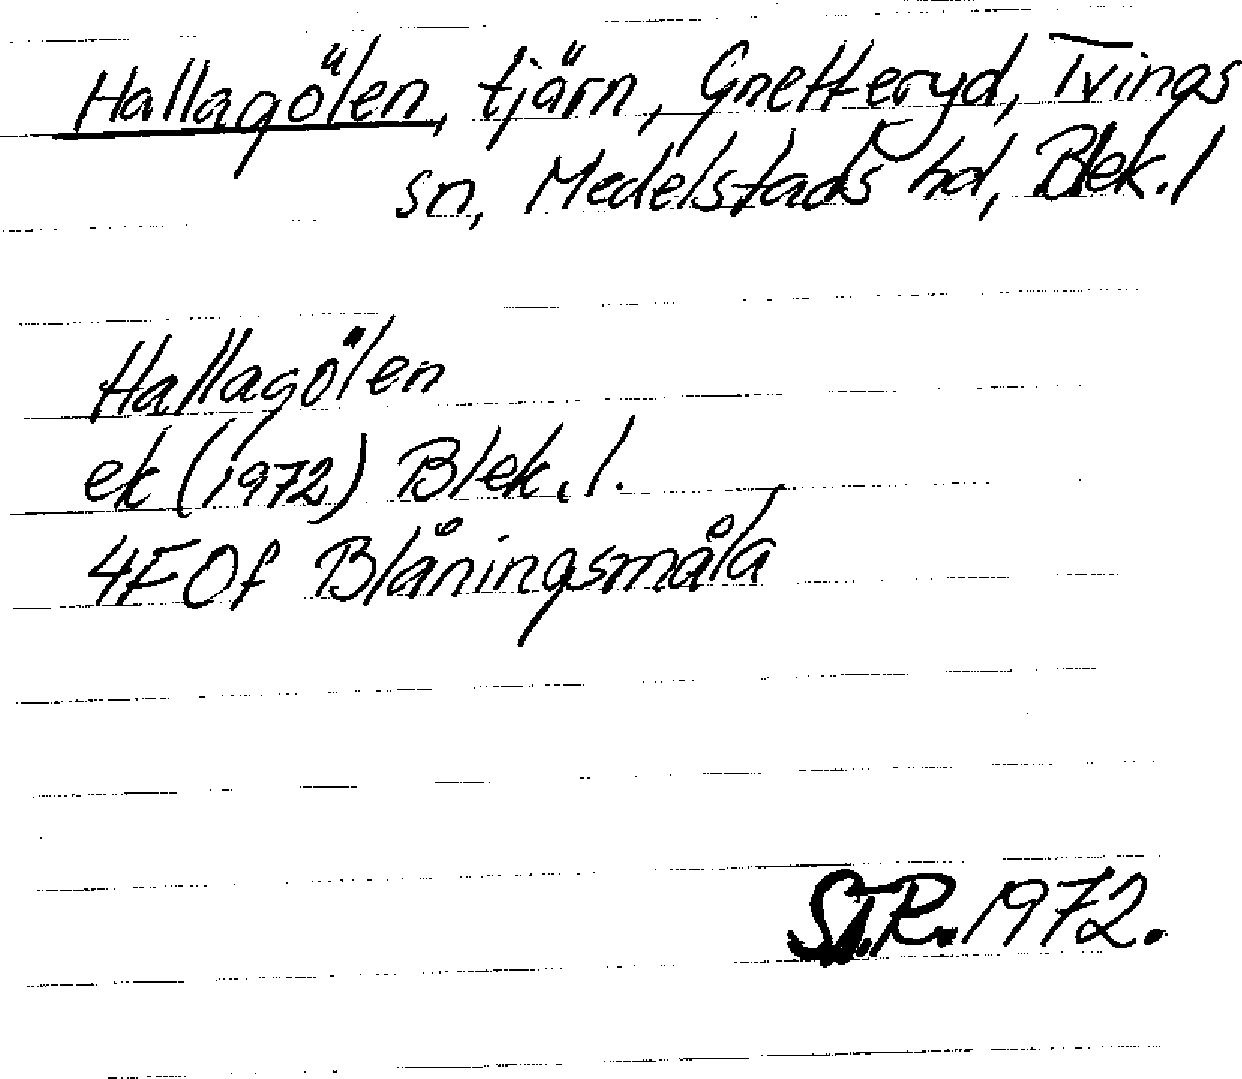 Hallagölen, tjärn, Gnetteryd, Tvings
sn, Medelstads hd, Blek. l
Hallagölen
ek (1972) Blek. l.
4F0f Blåningsmåla
S.T.R. 1972.